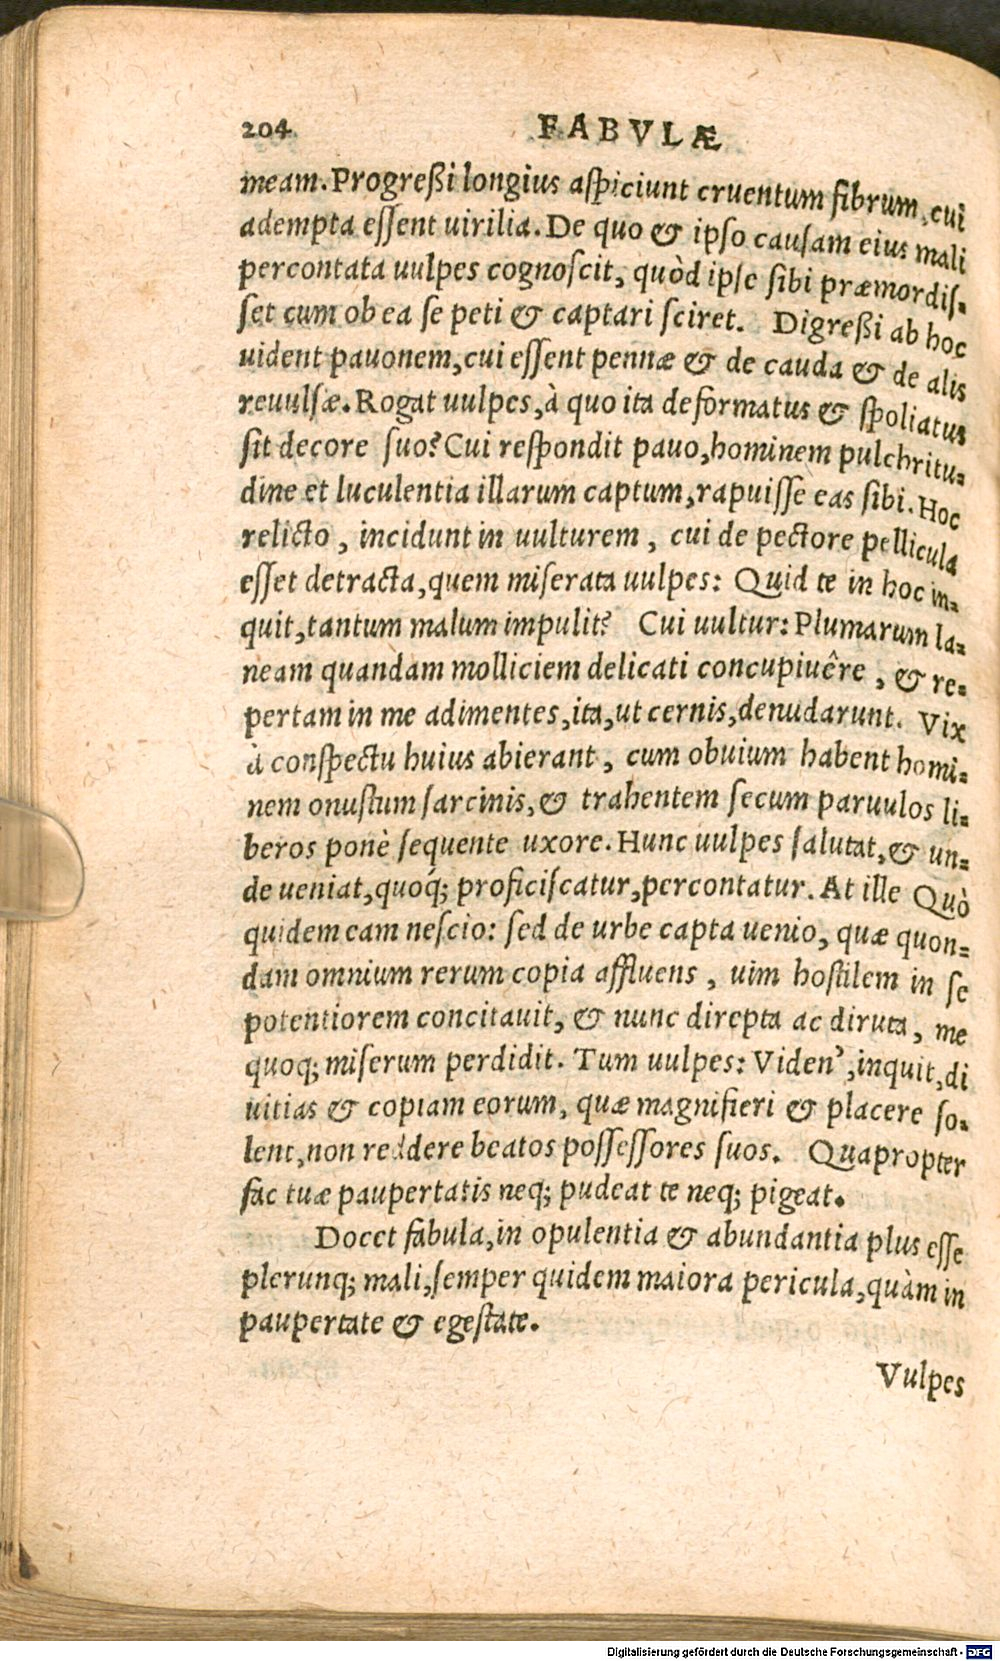 204 FABVLÆ
meam. Progreßi longius aſpiciunt cruentum fibrum, cui
adempta eſſent uirilia. De quo & ipſo cauſam eius mali
percontata uulpes cognoſcit, quòd ipſe ſibi præmordiſ-
ſet cum ob ea ſe peti & captari ſciret. Digreßi ab hoc
uident pauonem, cui eſſent pennæ & de cauda & de alis
reuulſæ. Rogat uulpes, à quo ita deformatus & ſpoliatus
ſit decore ſuo? Cui reſpondit pauo, hominem pulchritu-
dine et luculentia illarum captum, rapuiſſe eas ſibi. Hoc
relicto, incidunt in uulturem, cui de pectore pellicula
eſſet detracta, quem miſerata uulpes: Quid te in hoc in-
quit, tantum malum impulit? Cui uultur: Plumarum la-
neam quandam molliciem delicati concupiuêre, & re-
pertam in me adimentes, ita, ut cernis, denudarunt. Vix
à conſpectu huius abierant, cum obuium habent homi-
nem onuſtum ſarcinis, & trahentem ſecum paruulos li-
beros ponè ſequente uxore. Hunc uulpes ſalutat, & un-
de ueniat, quoq́; proficiſcatur, percontatur. At ille Quò
quidem eam neſcio: ſed de urbe capta uenio, quæ quon-
dam omnium rerum copia affluens, uim hoſtilem in ſe
potentiorem concitauit, & nunc direpta ac diruta, me
quoq; miſerum perdidit. Tum uulpes: Viden', inquit, di
uitias & copiam eorum, quæ magnifieri & placere ſo-
lent, non reddere beatos poſſeſſores ſuos. Quapropter
fac tuæ paupertatis neq; pudeat te neq; pigeat.
Docet fabula, in opulentia & abundantia plus eſſe
plerunq; mali, ſemper quidem maiora pericula, quàm in
paupertate & egeſtate.
Vulpes
Digitalisierung gefördert durch die Deutsche Forschungsgemeinschaft - DFG